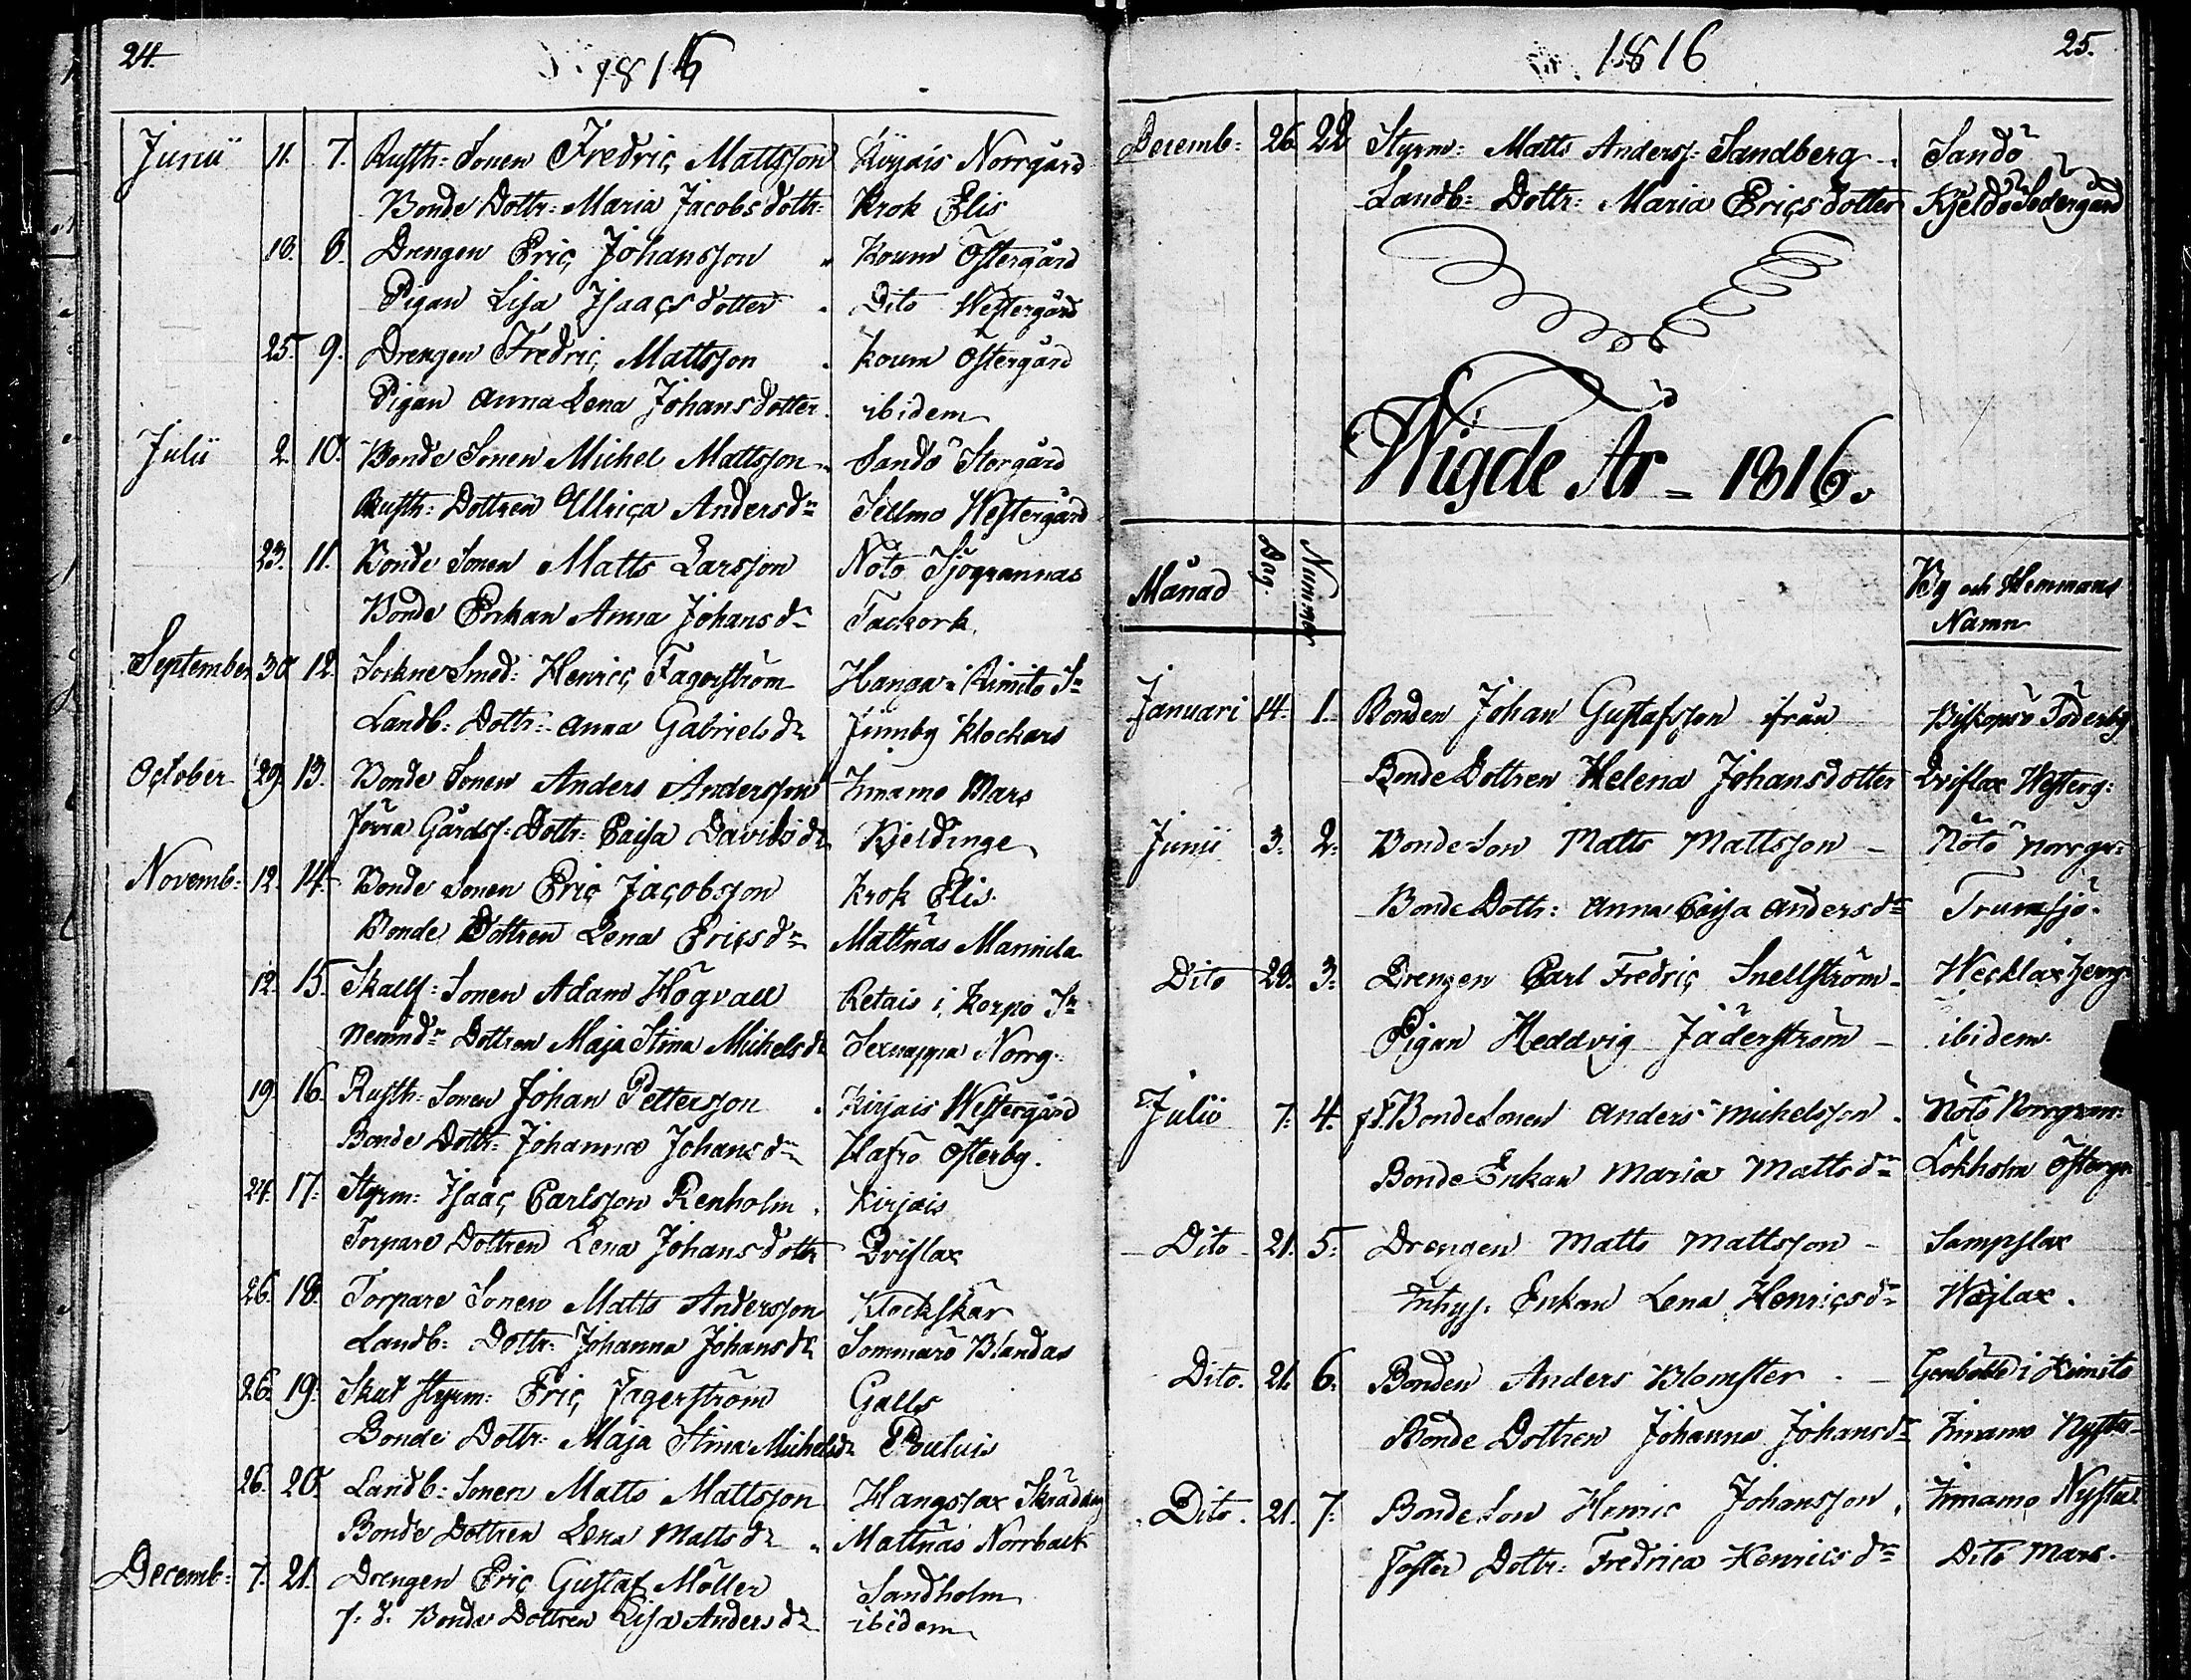 24.
1815
Junii 11. 7. Rusth: Sonen Fredric Mattsson Kirjais Norrgård
Bonde Dottr: Maria Jacobsdottr: Krok Elis
13. 8. Drengen Eric Johansson Koum Östergård
Pigan Lisa Isaacsdotter Dito Westergård
25. 9. Drengen Fredric Mattsson Koum Östergård
Pigan Anna Lena Johansdotter ibidem
Julii 2. 10. Bonde Sonen Michel Mattsson Sandö Storgård
Rusth: Dottren Ullrica Andersdr Sellmo Westergård
23. 11. Bonde Sonen Matts Larsson Nötö Sjögrannas
Bonde Enkan Anna Johansdr Fackork
September 30 12. Sockne Smed: Henric Fagerström Hanga i Kimito Sn
Landb: Dottr: Anna Gabrielsdr Finnby Klockars
October 29. 13. Bonde Sonen Anders Andersson Finnamo Mars
Gårdsf: Dottr: Caisa Davidsdr Kjeldinge
Novemb: 12. 14. Bonde Sonen Eric Jacobsson Krok Elis
Bonde Dottren Lena Ericsdr Mattnäs Mannila
12. 15. Skallf: Sonen Adam Högvall Retais i Korpo Sn
Nemndr Dottren Maja Stina Michelsdr Sexnappa Norrg:
19. 16. Rusth: Sonen Johan Pettersson Kirjais Westergård
Bonde Dottr: Johanna Johansdr Hafrö Österby.
24. 17. Styrm: Isaac Carlsson Renholm Kirjais
Torpare Dottren Lena Johansdottr Driflax
26. 18. Torpare Sonen Matts Andersson Klockskär
Landb: Dottr: Johanna Johansdr Sommarö Blandas
26. 19. Skut Styrm: Eric Fagerström Galls
Bonde Dottr: Maja Stina Michelsdr Pouluis
26. 20. Landb: Sonen Matts Mattsson Hangslax
Bonde Dottren Lena Mattsdr Mattnäs Norrback
Decemb: 7. 21. Drengen Eric Gustaf Möller Sandholm
f: d: Bonde Dottren Lisa Andersdr ibidem
1816
25.
Decemb: 26. 22 Styrm: Matts Anderss: Sandberg Sandö
Landb: Dottr: Maria Ericsdotter Kjeldö Södergård
Wigde År - 1816.
Månad Dag. Nummer By och Hemmans
Namn
Januari 14. 1. Bonden Johan Gustafsson ifrån Biskopsö Söderby
Bonde Dottren Helena Johansdotter Driflax Westerg:
Junii 3. 2. Bonde Son Matts Mattsson Nötö Norrgr:
Bonde Dottr: Anna Caisa Andersdr Trunsjö.
Dito 23. 3. Drengen Carl Fredric Snellström Wecklax
Pigan Heddvig Jäderström ibidem.
Julii 7. 4. f.d. Bonde Sonen Anders Michelsson Nötö Norrgran:
Bonde Enkan Maria Mattsdr Lökholm Östergr:
Dito 21. 5. Drengen Matts Mattsson Sampslax
Inhys: Enkan Lena Henricsdr Wäjlax.
Dito. 21. 6. Bonden Anders Blomster Genböle i Kimito
Bonde Dottren Johanna Johansdr Finnamo Nystu
Dito. 21. 7. Bonde Son Henric Johansson Finnamo Nystu
Foster Dottr: Fredrica Henricsdr Dito Mars.